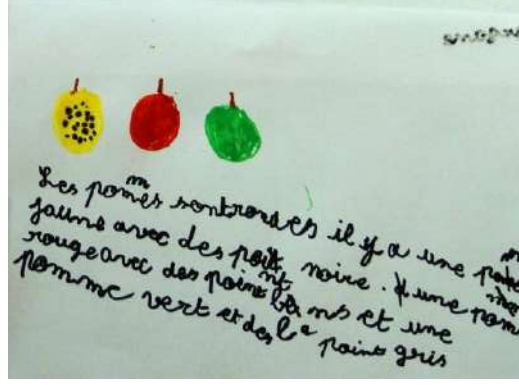 Les pommes sontrouves il y a une
jaune avec des point noire. une
rouge avec des point blans et une
pomme vert et des point gris